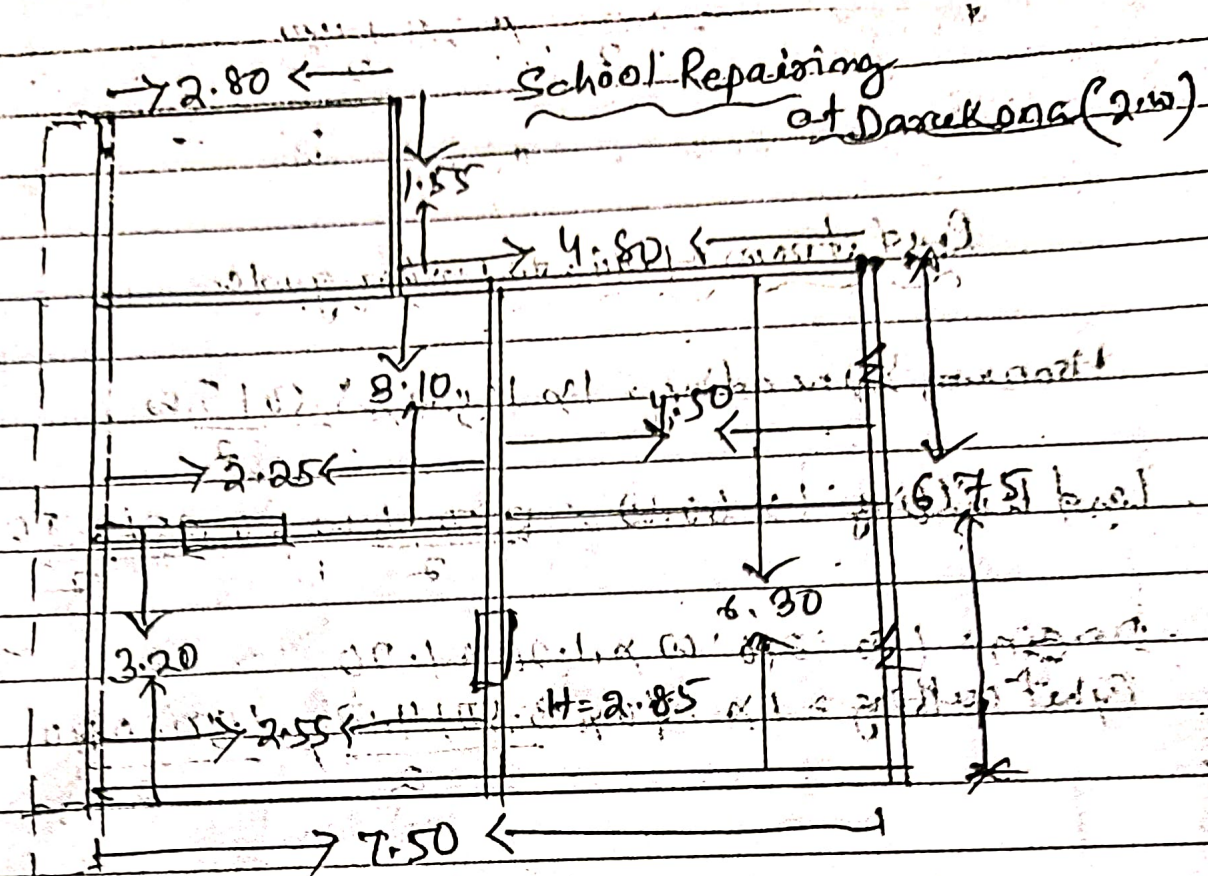 2.80
School Repairing
at Darekona (2.w)
1.55
4.80
3.10
4.50
2.25
6.75
6.30
3.20
H=2.85
2.55
7.50